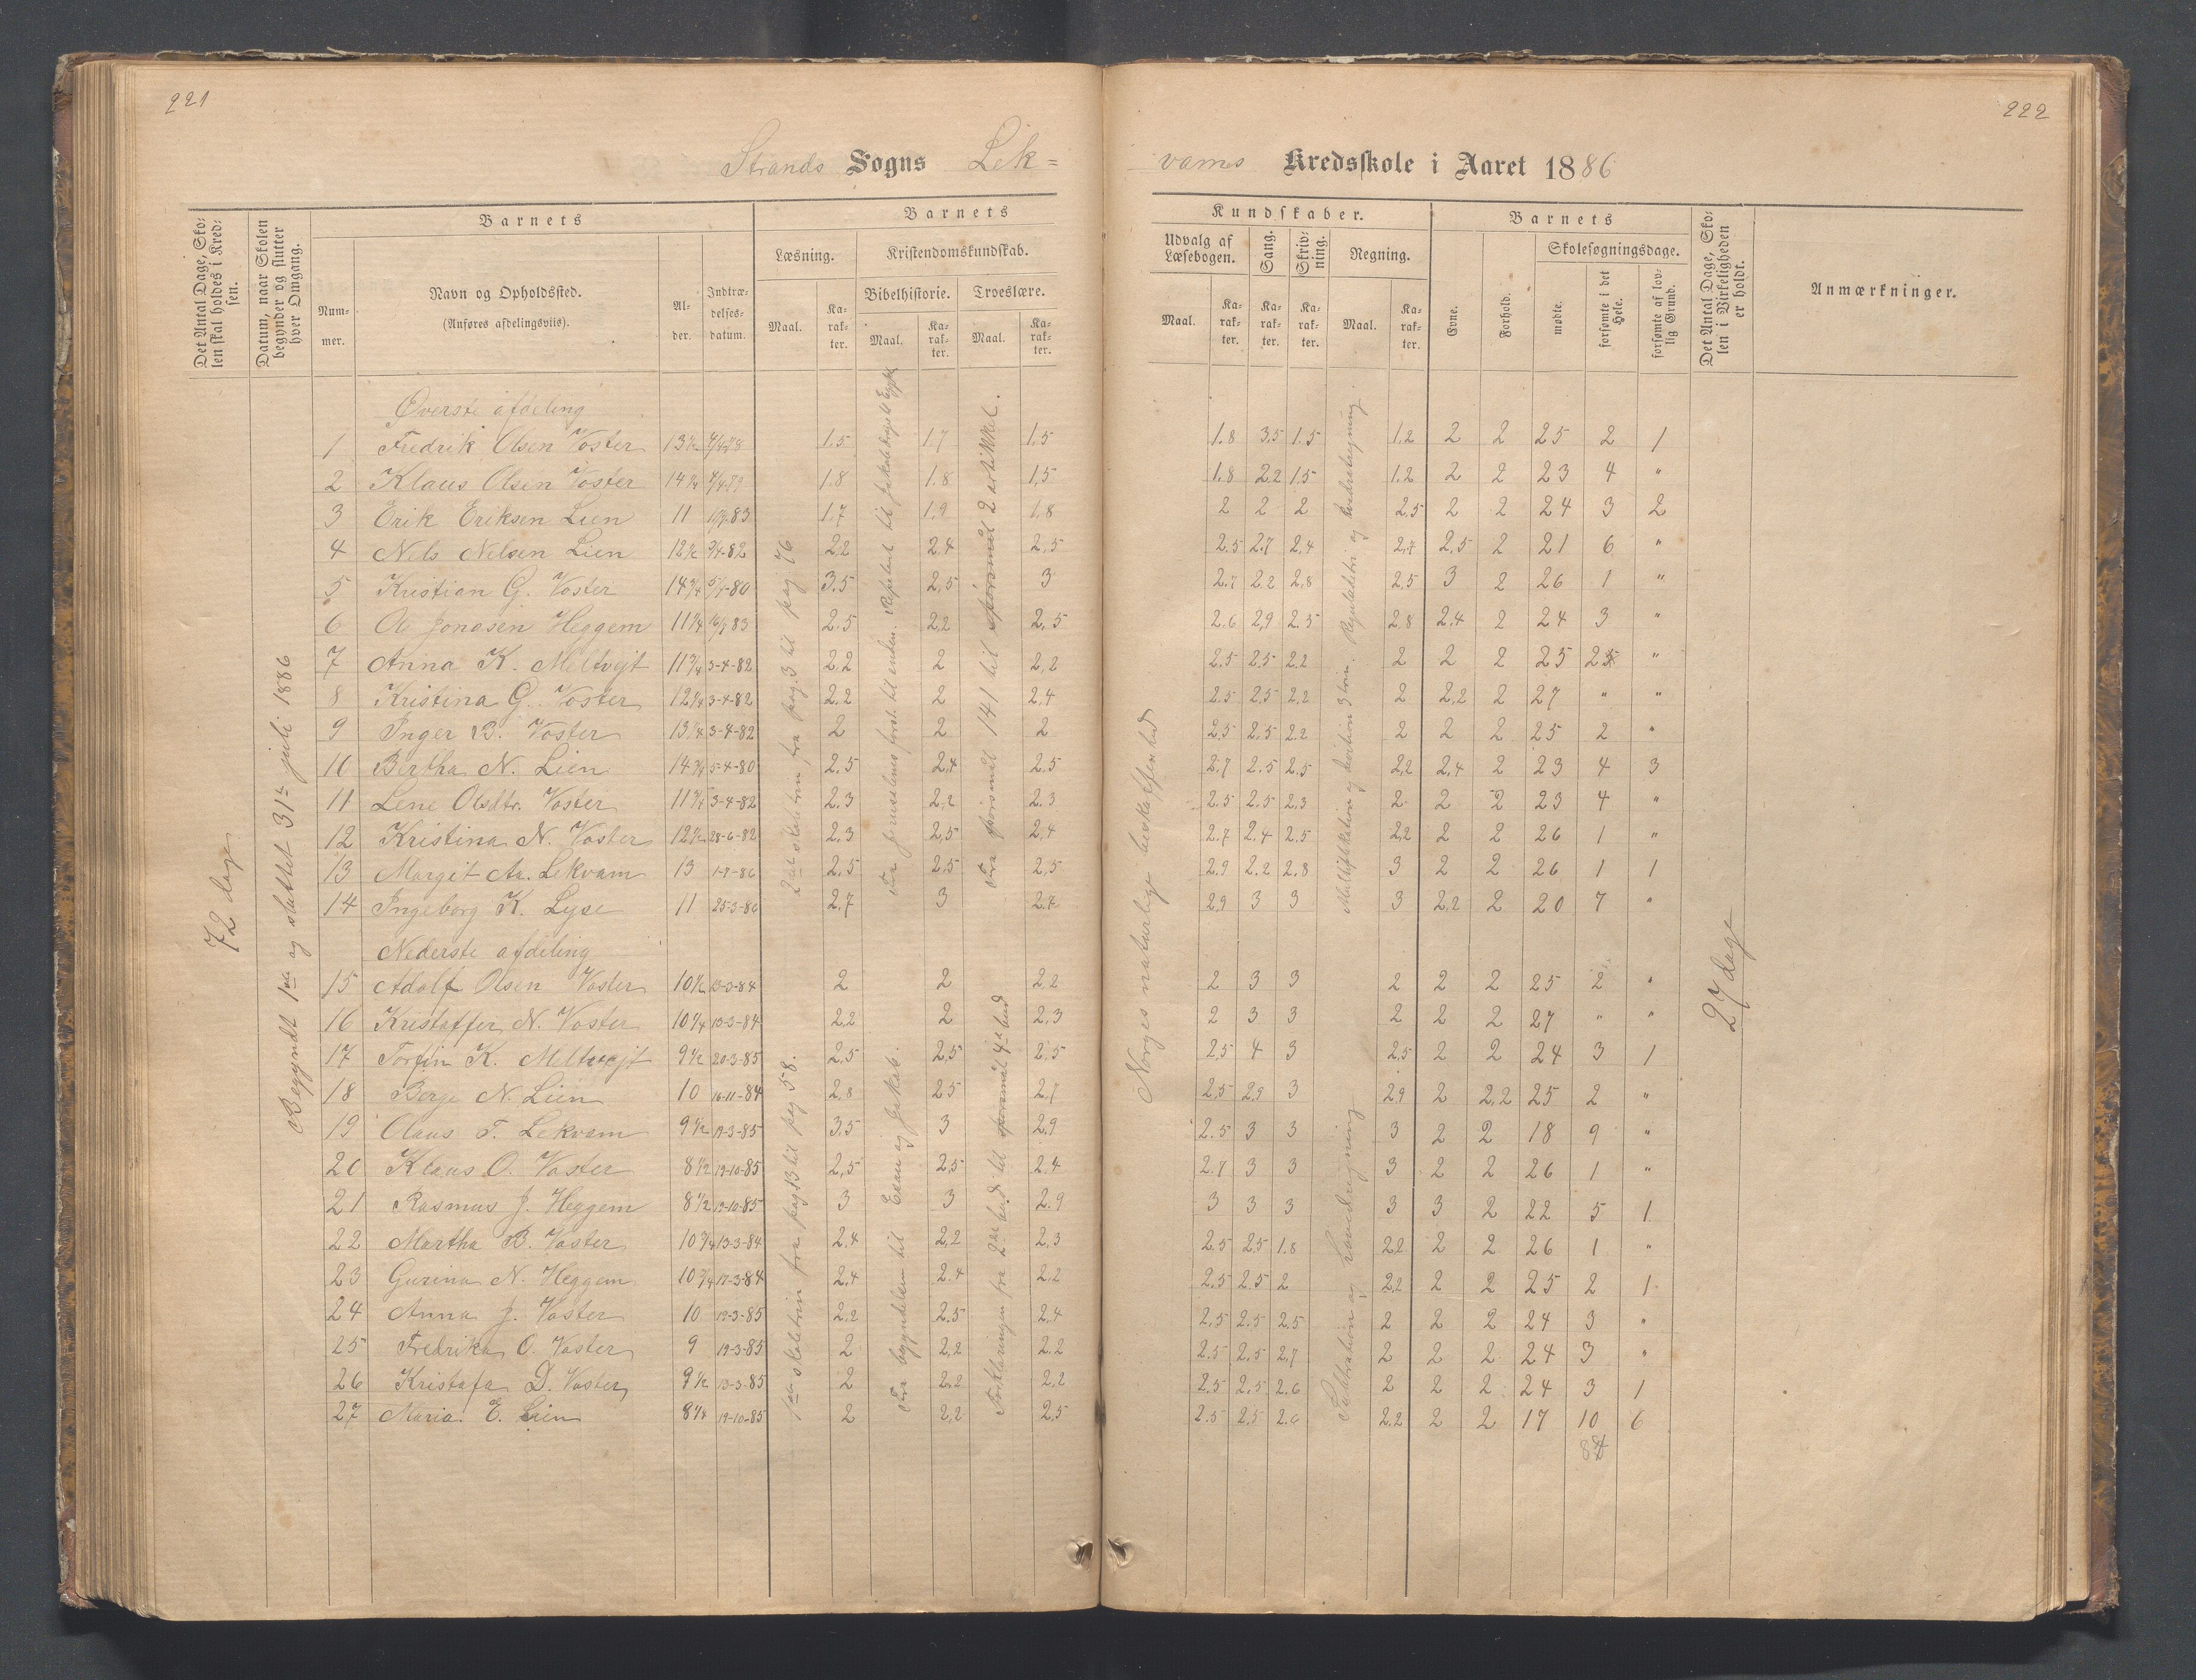 221
222
Strands Sogns Lek=
vams Kredsskole i Aaret 1886
Det Antal Dage, Sko-
len skal holdes i Kred-
sen.
Datum, naar Skolen
begynder og slutter
hver Omgang.
Barnets
Num-
mer.
Navn og Opholdssted.
(Anføres afdelingsviis).
Al-
der.
Indtræ-
delses-
datum.
Barnets
Læsning.
Kristendomskundskab.
Bibelhistorie.
Troeslære.
Maal.
Ka-
rak-
ter.
Maal.
Ka-
rak-
ter.
Maal.
Ka-
rak-
ter.
Kundskaber.
Udvalg af
Læsebogen.
Sang.
Skriv-
ning.
Regning.
Maal.
Ka-
rak-
ter.
Ka-
rak-
ter.
Ka-
rak-
ter.
Maal.
Ka-
rak-
ter.
Barnets
Evne.
Forhold.
Skolesøgningsdage.
mødte.
forsømte i det
Hele.
forsømte af lov-
lig Grund.
Det Antal Dage, Sko-
len i Virkeligheden
er holdt.
Anmærkninger.
72 dage
Begyndt 1ste og sluttet 31te juli 1886
2det skoletrin fra pag. 3 til pag 76
Fra spørsmål 141 til spørsmål 2 artikkel.
Norges naturlige beskaffenhed
27 dage
1ste skoletrin fra pag 13 til pag 58.
Fra begyndelsen til Esau og Jakob.
Forklaringen fra 2det bud til spørsmål 4de bud
Øverste afdeling
1 Fredrik Olsen Voster 13½ 1,5 1.7 1,5 1.8 3,5 1.5 1,2 2 2 25 2 1
2 Klaus Olsen Voster 14¼ 1.8 1.8 1,5 1.8 2.2 1.5 1.2 2 2 23 4 "
3 Erik Eriksen Lien 11 1.7 1.9 1.8 2 2 2 2.5 2 2 24 3 2
4 Nels Nelsen Lien 12½ 2,2 2.4 2,5 2.5 2.7 2.4 2,7 2,5 2 21 6 "
5 Kristian G. Voster 14¾ 3.5 2,5 3 2.7 2.2 2,8 2,5 3 2 26 1 "
6 Ole Jonasen Heggem 11¼ 2.5 2,2 2,5 2.6 2,9 2.5 2.8 2.4 2 24 3 "
7 Anna K. Meltvejt 11¾ 3-4-82 2,2 2 2,2 2.5 2.5 2.2 2 2 2 25 2 "
8 Kristina G. Voster 12¼ 3-4-82 2,2 2 2,4 2.5 2,5 2,2 2 2,2 2 27 " "
9 Inger B. Voster 13¼ 3-4-82 2 2 2 2,5 2.5 2.2 2 2 2 25 2 "
10 Bertha N. Lien 14¾ 5-4-80 2.5 2,4 2.5 2.7 2.5 2.5 2,2 2.4 2 23 4 3
11 Lene Olsdtr. Voster 11¾ 3-4-82 2.3 2,2 2.3 2.5 2.5 2,3 2 2 2 23 4 "
12 Kristina N. Voster 12½ 28-6-82 2,3 2,5 2,4 2.7 2.4 2.5 2,2 2 2 26 1 "
13 Margit Aa. Lekvam 13 1-7-86 2.5 2.5 2,5 2.9 2.2 2.8 3 2 2 26 1 1
14 Ingeborg K. Lyse 11 25-3-86 2.7 3 2.7 2,9 3 3 3 2.2 2 20 7 "
Nederste afdeling
15 Adolf Olsen Voster 10½ 13-3-84 2 2 2,2 2 3 3 2 2 2 25 2 "
16 Kristoffer N. Voster 10¼ 13-3-84 2,2 2 2,3 2 3 3 2 2 2 27 " "
17 Torfin K. Meltvejt 9½ 20-3-85 2,5 2,5 2,5 2,5 4 3 2,5 2 2 24 3 1
18 Berge N. Lien 10 16-11-84 2,8 2,5 2,7 2,5 2,9 3 2,9 2 2,2 25 2 "
19 Olaus T. Lekvam 9½ 19-3-85 3,5 3 2,9 2.5 3 3 3 2 2 18 9 "
20 Klaus O. Voster 8½ 19-10-85 2,5 2,5 2,4 2.7 3 3 3 2 2 26 1 "
21 Rasmus J. Heggem 8½ 19-10-85 3 3 2.9 3 3 3 3 3 2 22 5 1
22 Martha B. Voster 10¾ 13-3-84 2,4 2,2 2,3 2.5 2,5 1.8 2,2 2 2 26 1 "
23 Gurina N. Heggem 10¾ 17-3-84 2,4 2.4 2,2 2.5 2.5 2 2,2 2 2 25 2 1
24 Anna J. Voster 10 19-3-85 2,2 2.5 2,4 2,5 2.5 2.5 2 2 2 24 3 "
25 Fredrika O. Voster 9 19-3-85 2 2,2 2,2 2.5 2.5 2,7 2 2 2 24 3 "
26 Kristofa D. Voster 9½ 13-3-85 2 2,2 2,2 2.5 2.5 2.6 2 2 2 24 3 1
27 Maria E. Lien 8¼ 19-10-85 2 2,2 2,5 2.5 2,5 2.6 2.2 2 2 17 10 6